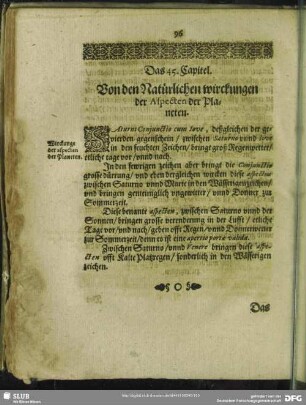 96
Das 45. Capitel.
Von den Natürlichen wirckungen
der Aspecten der Pla-
neten.
Wirckunge
der aspecten
der Planeten.
SAturni Conjunctio cum Iove, deßgleichen der ge-
vierden gegenschein / zwischen Saturno vnnd Iove
in den feuchten Zeichen / bringt groß Regenwetter /
etliche tage vor / vnnd nach.
In den fewrigen zeichen aber bringt die Conjunctio
grosse dürrung / vnd eben dergleichen wircken diese aspectus
zwischen Saturno vnnd Marte in den Wässerigen zeichen /
vnd bringen gemeiniglich vngewitter / vnnd Donner zur
Sommerzeit.
Diese benante aspecten, zwischen Saturno vnnd der
Sonnen / bringen grosse verenderung in der Lufft / etliche
Tage vor / vnd nach / geben offt Regen / vnnd Donnerwetter
zur Sommerzeit / denn es ist eine apertio porta valida.
Zwischen Saturno / vnnd Venere bringen diese aspe-
cten offt Kalte Platzregen / sonderlich in den Wässerigen
zeichen.
Das
SLUB
DFG